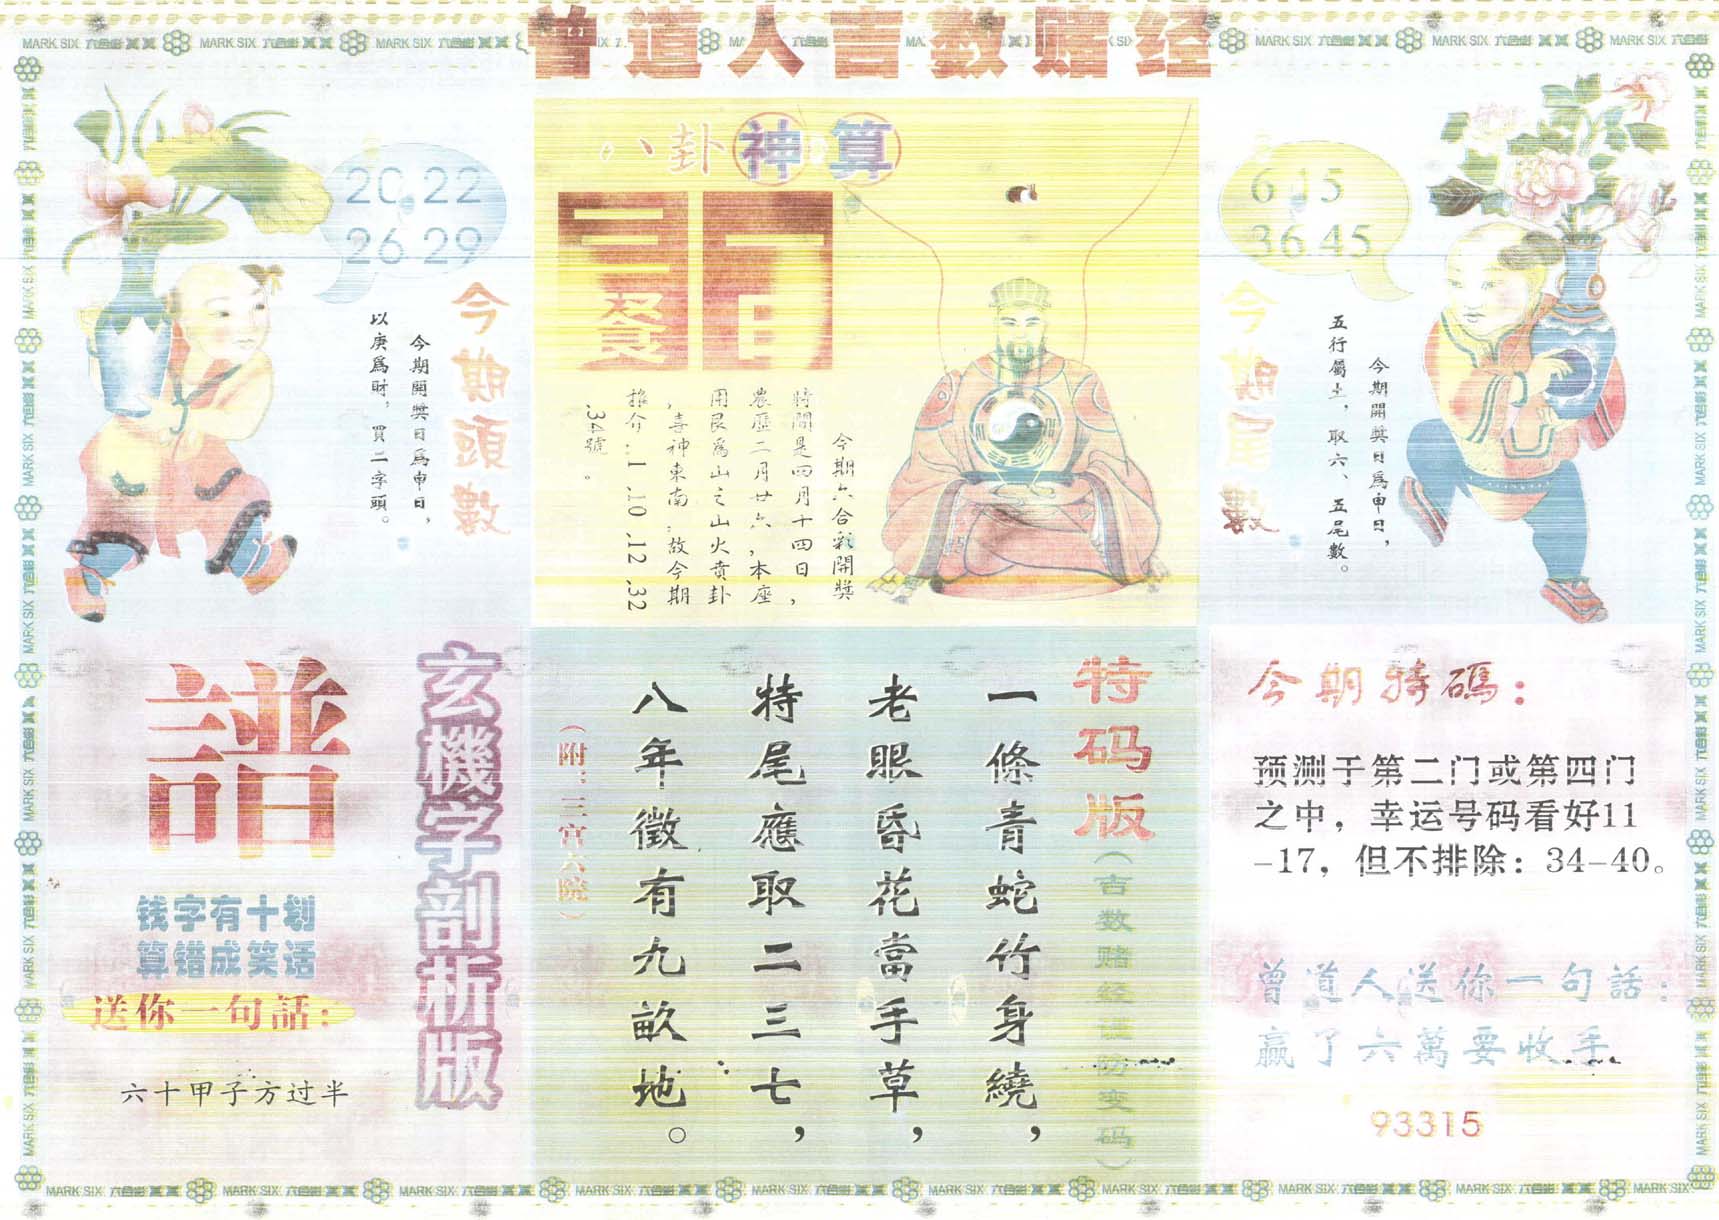 曾道人言数赌经
八卦神算
20 22
26 29
今期頭數
今期開獎日爲申日，
以庚爲財，買二字頭。
今期六合彩開獎
時間是四月十四日，
農歷二月廿六，本座
用艮爲山之山火賁卦
，喜神東南，故今期
推介：1.10.12.32
.34號。
6 15
36 45
今期尾數
今期開獎日爲申日，
五行屬土，取六、五尾數。
玄機字剖析版
譜
钱字有十划
算错成笑话
送你一句話：
六十甲子方过半
特码版
一條青蛇竹身繞，
老眼昏花當手草，
特尾應取二三七，
八年徵有九畝地。
（附：三宫六院）
今期特碼：
预测于第二门或第四门
之中，幸运号码看好11
-17，但不排除：34-40。
曾道人送你一句話：
赢了六萬要收手
93315